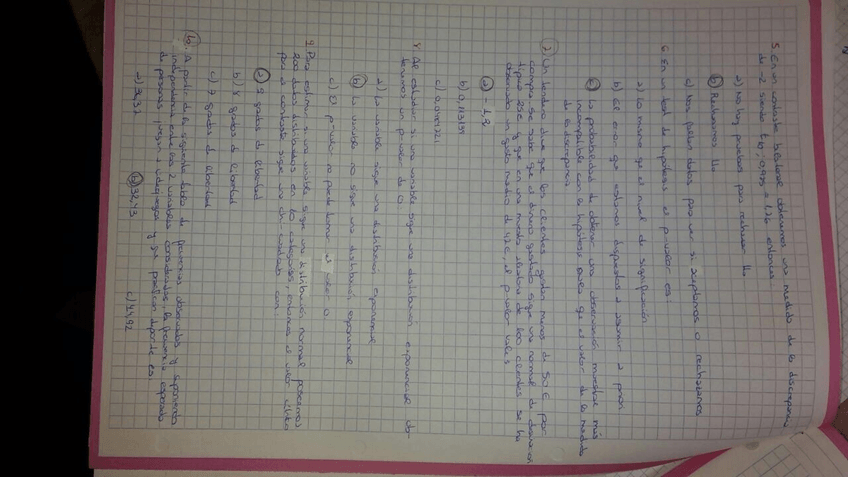 5. En un contraste bilateral obtenemos una medida de la discrepancia
de -2 siendo t10, 0,975 = entonces
a) No hay pruebas para rechazar H0
b) Rechazamos H0
c) Nos faltan datos para ver si aceptamos o rechazamos
6. En un test de hipótesis el p-valor es
a) Lo mismo que el nivel de significación
b) El error que estamos dispuestos a asumir a priori
c) La probabilidad de obtener una observación muestral más
incompatible con la hipótesis nula que el valor de la medida
de la discrepancia
7. Un teórico dice que los clientes gastan menos de 50 € por
compra. Se sabe que el dinero gastado sigue una normal de
típica 25€ y que en una muestra aleatoria de 100 clientes se ha
obtenido un gasto medio de 42€, el p-valor vale
a) -4,2
b)
c)
8. Al estudiar si una variable sigue una distribución exponencial ob-
tenemos un p-valor de 0
a) La variable sigue una distribución exponencial
b) La variable no sigue una distribución exponencial
c) El p-valor no puede tomar el valor 0.
9. Para estimar si una variable sigue una distribución normal poseemos
200 datos distribuidos en 10 categorías, entonces el valor crítico
para el contraste sigue una chi-cuadrado con:
a) 9 grados de libertad
b) 8 grados de libertad
c) 7 grados de libertad
10. A partir de la siguiente tabla de frecuencias observadas y suponiendo
independencia entre las 2 variables consideradas, la frecuencia esperada
de personas y que practican deporte es
a) 36,37
b) 32,43
c) 24,92